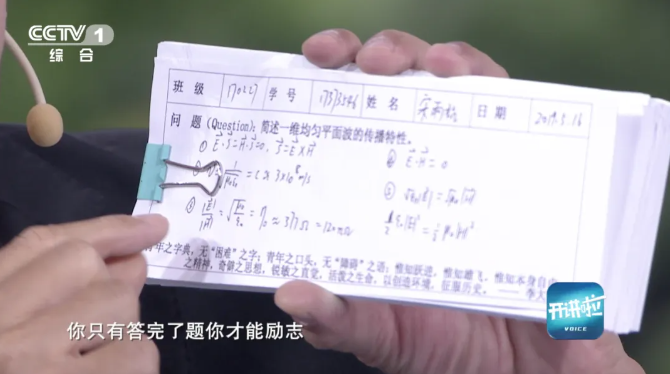 CCTV 1
综合
班级 170227 学号 姓名 日期 2019.5.16
问题(Question): 简述一维均匀平面波的传播特性。
① E·S=H·S=0, S=E×H
② E·H=0
= C ≈ 3×10⁸ m/s
③ |E|/|H| = √μ₀/ε₀ = η₀ ≈ 377Ω = 120πΩ
青年之字典,无“困难”之字;青年之口头,无“障碍”之语;惟知跃进,惟知雄飞,惟知本身自由
之精神,奇僻之思想,锐敏之直觉,活泼之生命,以创造环境,征服历史。 —— 李大
你只有答完了题你才能励志
开讲啦
VOICE